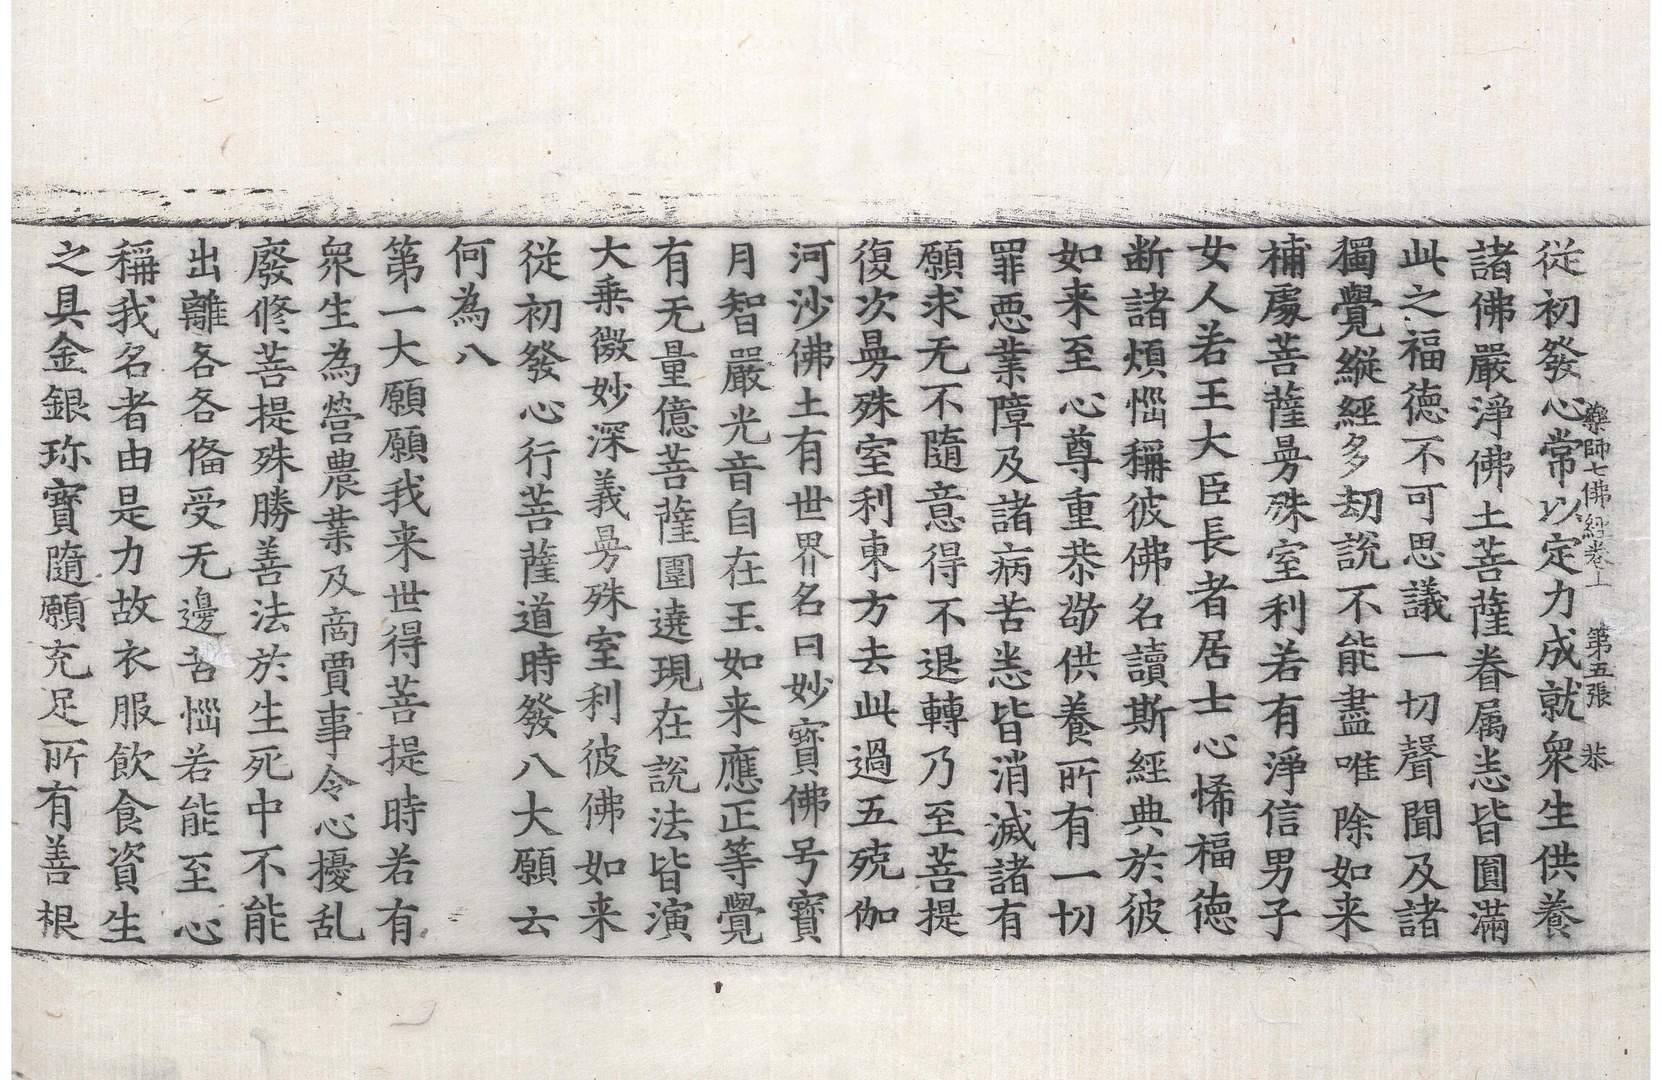 藥師七佛經卷上　第五張　恭
從初發心常以定力成就衆生供養
諸佛嚴淨佛土菩薩眷属恚皆圓滿
此之福德不可思議一切聲聞及諸
獨覺縱經多劫說不能盡唯除如来
補處菩薩曼殊室利若有淨信男子
女人若王大臣長者居士心悕福德
断諸煩惱稱彼佛名讀斯經典於彼
如来至心尊重恭敬供養所有一切
罪惡業障及諸病苦恚皆消滅諸有
願求无不隨意得不退轉乃至菩提
復次曼殊室利東方去此過五殑伽
河沙佛土有世界名曰妙寶佛号寶
月智嚴光音自在王如来應正等覺
有无量億菩薩圍遶現在說法皆演
大乗微妙深義曼殊室利彼佛如来
從初發心行菩薩道時發八大願云
何為八
第一大願願我来世得菩提時若有
衆生為營農業及商賈事令心擾乱
廢修菩提殊勝善法於生死中不能
出離各各俻受无邊苦惱若能至心
稱我名者由是力故衣服飲食資生
之具金銀珎寶隨願充足所有善根